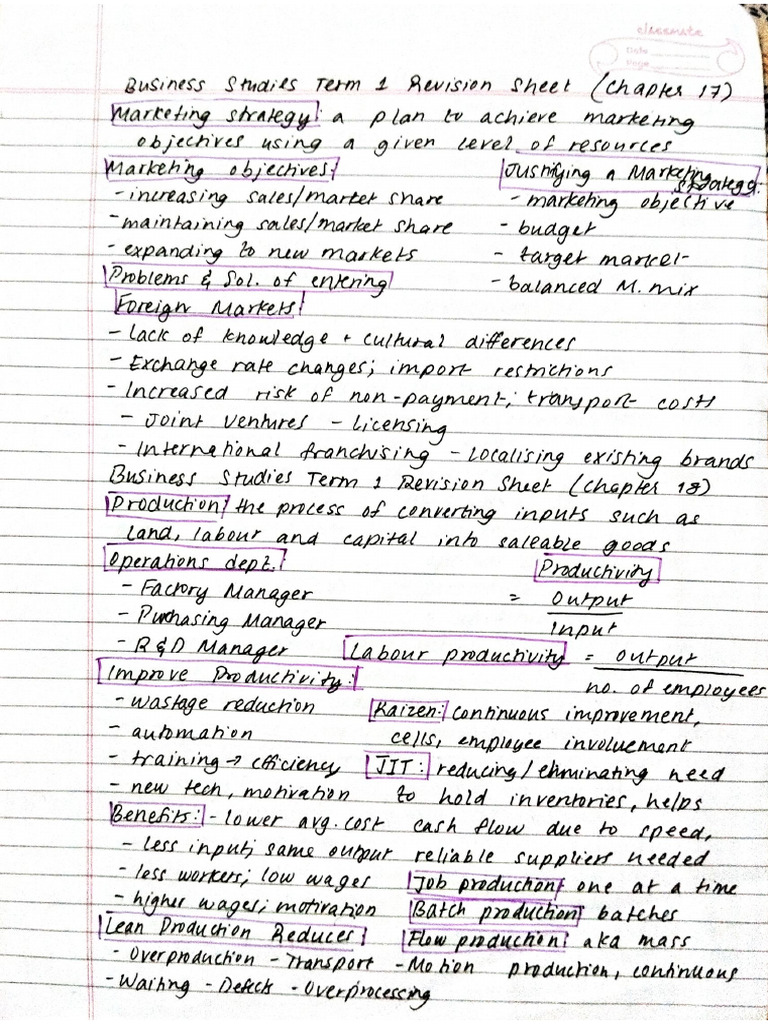 classmate
Date
Page
Business Studies Term 1 Revision Sheet (Chapter 17)
Marketing strategy: a plan to achieve marketing
objectives using a given level of resources
Marketing objectives:
- increasing sales/market share
- maintaining sales/market share
- expanding to new markets
Justifying a Marketing
strategy:
- marketing objective
- budget
- target market
- balanced M. mix
Problems & Sol. of entering
Foreign Markets
- Lack of knowledge + cultural differences
- Exchange rate changes; import restrictions
- Increased risk of non-payment; transport costs
- Joint ventures - Licensing
- International franchising - Localising existing brands
Business Studies Term 1 Revision Sheet (Chapter 18)
Production: the process of converting inputs such as
land, labour and capital into saleable goods
Operations dept.:
- Factory Manager
- Purchasing Manager
- R&D Manager
Productivity
= Output
Input
Labour productivity = output
no. of employees
Improve Productivity:
- wastage reduction
- automation
- training → efficiency
- new tech, motivation
Kaizen: continuous improvement,
cells, employee involvement
JIT: reducing/eliminating need
to hold inventories, helps
cash flow due to speed,
reliable suppliers needed
Benefits: - lower avg. cost
- less input; same output
- less workers; low wages
- higher wages; motivation
Job production: one at a time
Batch production: batches
Flow production: aka mass
production, continuous
Lean Production Reduces:
- Overproduction - Transport - Motion
- Waiting - Defects - Overprocessing